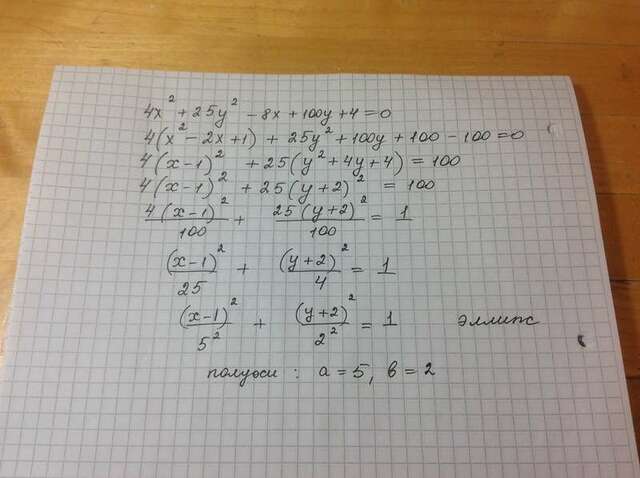 4x² + 25y² - 8x + 100y + 4 = 0
4(x² - 2x + 1) + 25y² + 100y + 100 - 100 = 0
4(x - 1)² + 25(y² + 4y + 4) = 100
4(x - 1)² + 25(y + 2)² = 100
4(x - 1)²/100 + 25(y + 2)²/100 = 1
(x - 1)²/25 + (y + 2)²/4 = 1
(x - 1)²/5² + (y + 2)²/2² = 1 эллипс
полуоси : a = 5, в = 2